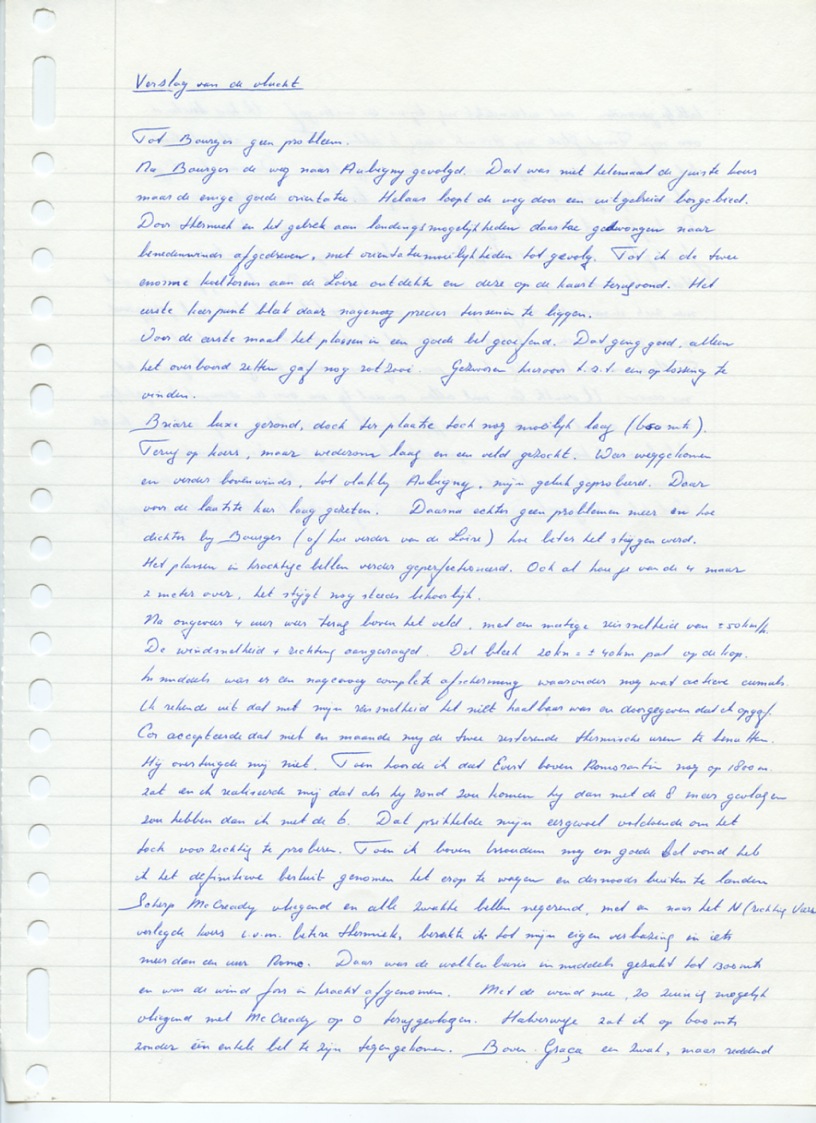 Verslag van de vlucht
Tot Bourges geen probleem.
Na Bourges de weg naar Aubigny gevolgd. Dat was niet helemaal de juiste koers
maar de enige goede orientatie. Helaas loopt de weg door een uitgebreid bosgebied.
Door thermiek en het gebrek aan landingsmogelijkheden daartoe gedwongen naar
benedenwinds afgedreven, met orientatiemoeilijkheden tot gevolg. Tot ik de twee
enorme koeltorens aan de Loire ontdekte en deze op de kaart terugvond. Het
eerste keerpunt bleek daar nagenoeg precies tussenin te liggen.
Voor de eerste maal het plassen in een goede bel geoefend. Dat ging goed, alleen
het overboord zetten gaf nog rotzooi. Gezworen hiervoor t.z.t. een oplossing te
vinden.
Briare luxe gerond, doch ter plaatse toch nog moeilijk laag (600 mtr).
Terug op koers, maar wederom laag en een veld gezocht. Weer weggekomen
en verder bovenwinds, tot vlakbij Aubigny, mijn geluk geprobeerd. Daar
voor de laatste keer laag gezeten. Daarna echter geen problemen meer en hoe
dichter bij Bourges (of hoe verder van de Loire) hoe beter het stijgen werd.
Het plassen in krachtige bellen verder geperfectioneerd. Ook al hou je van de 4 maar
2 meter over, het stijgt nog steeds behoorlijk.
Na ongeveer 4 uur weer terug boven het veld, met een matige reissnelheid van ± 50 km/h.
De windsnelheid + richting aangevraagd. Dat bleek 20 kn = ± 40 km pal op de kop.
Inmiddels was er een nagenoeg complete afscherming waaronder nog wat actieve cumuls.
Ik rekende uit dat met mijn reissnelheid het niet haalbaar was en doorgegeven dat ik opgaf.
Cor accepteerde dat niet en maande mij de twee resterende thermische uren te benutten.
Hij overtuigde mij niet. Toen hoorde ik dat Evert boven Romorantin nog op 1800 m
zat en ik realiseerde mij dat als hij rond zou komen hij dan met de 8 meer gevlogen
zou hebben dan ik met de 6. Dat prikkelde mijn eergevoel voldoende om het
toch voorzichtig te proberen. Toen ik boven Issoudun nog een goede bel vond heb
ik het definitieve besluit genomen het erop te wagen en desnoods buiten te landen
Scherp McCready vliegend en alle zwakke bellen negerend, met en naar het N (richting
verlegde koers i.v.m. betere thermiek, bereikte ik tot mijn eigen verbazing in iets
meer dan een uur Romo. Daar was de wolkenbasis inmiddels gezakt tot 1300 mtr
en was de wind fors in kracht afgenomen. Met de wind mee, zo zuinig mogelijk
vliegend met McCready op 0 teruggevlogen. Halverwege zat ik op 600 mtr
zonder één enkele bel te zijn tegengekomen. Boven Graça een zwak, maar reddend